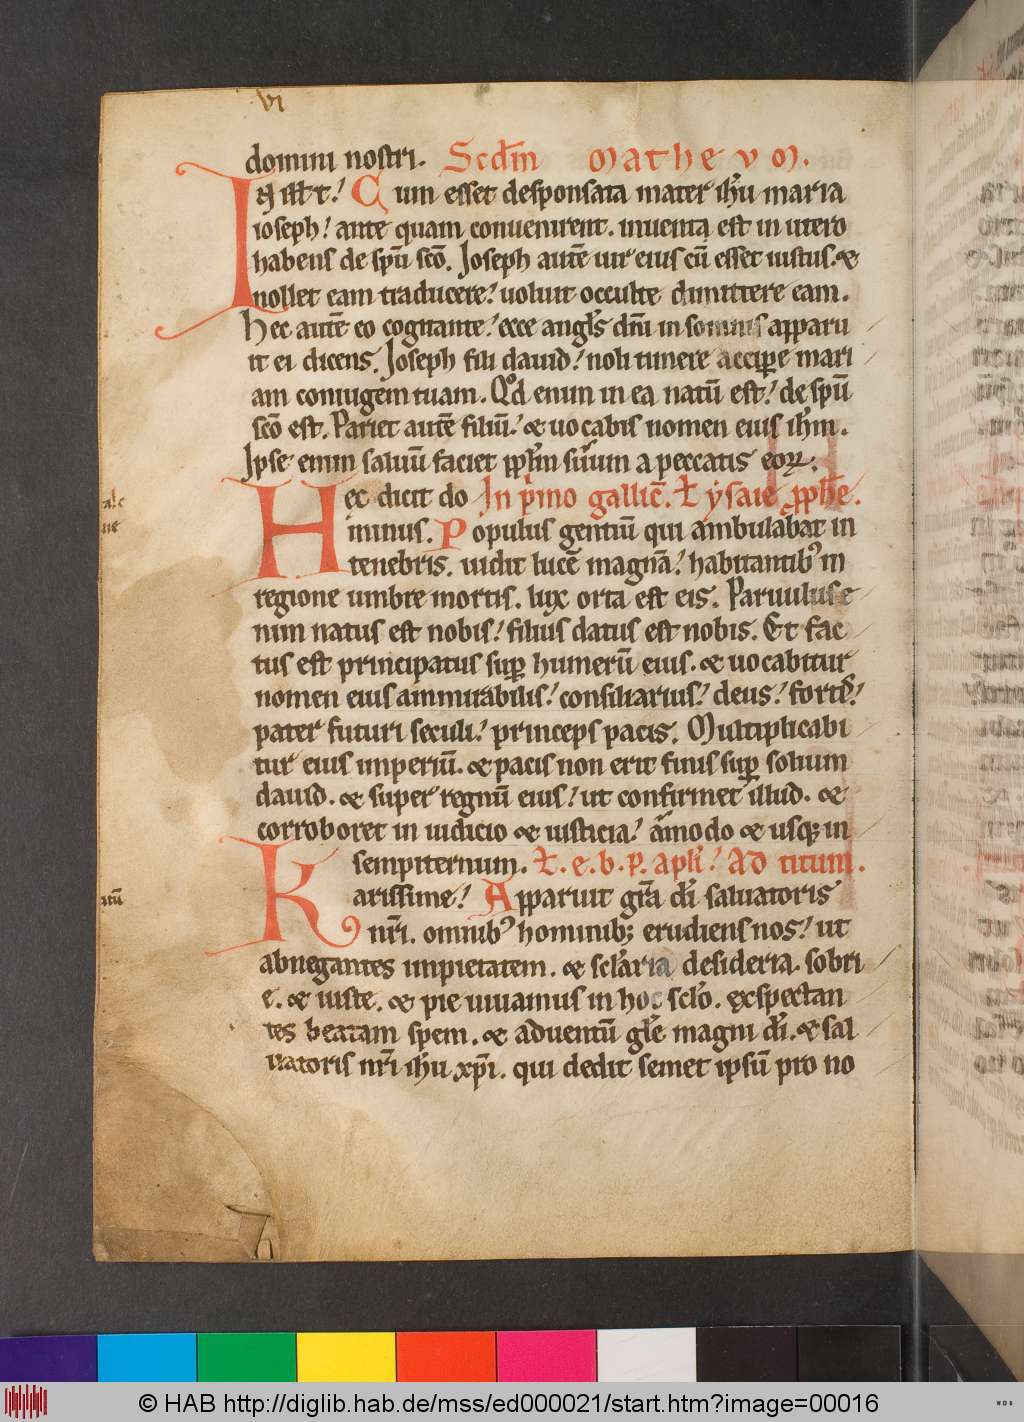 vi
domini nostri. Scd̄m Matheum.
In ill̄ t̄! Cum esset desponsata mater ih̄u maria
ioseph! ante quam conuenirent. inuenta est in utero
habens de sp̄u sc̄o. Joseph autē uir eius cū esset iustus. &
nollet eam traducere! uoluit occulte dimittere eam.
Hec autē eo cogitante! ecce angl̄s dn̄i in somnis apparu
it ei dicens. Joseph fili dauid! noli timere accipe mari
am coniugem tuam. Qd̄ enim in ea natū est! de sp̄u
sc̄o est. Pariet autē filiū! & uocabis nomen eius ih̄m.
Ipse enim saluū faciet pp̄l̄m suum a peccatis eoꝝ.
Hec dicit do In p̄mo gallic̄. ł ysaie pph̄e.
minus. Populus gentiū qui ambulabat in
tenebris. uidit lucē magnā! habitantibꝰ in
regione umbre mortis. lux orta est eis. Paruulus e
nim natus est nobis! filius datus est nobis. Et fac
tus est principatus suꝑ humerū eius. & uocabitur
nomen eius ammirabilis! consiliarius! deus! fortis!
pater futuri seculi! princeps pacis. Multiplicabi
tur eius imperiū. & pacis non erit finis suꝑ solium
dauid. & super regnū eius! ut confirmet illud. &
corroboret in iudicio & iusticia! amodo & usqꝫ in
sempiternum. ł. e. b. p. apl̄i! Ad titum.
Karissime! Apparuit gr̄a dī saluatoris
nr̄i. omnibꝰ hominibꝫ erudiens nos! ut
abnegantes impietatem. & scl̄aria desideria. sobri
e. & iuste. & pie uiuamus in hoc scl̄o. exspectan
tes beatam spem. & aduentū gl̄e magni dī. & sal
uatoris nr̄i ih̄u xp̄i. qui dedit semet ipsū pro no
© HAB http://diglib.hab.de/mss/ed000021/start.htm?image=00016